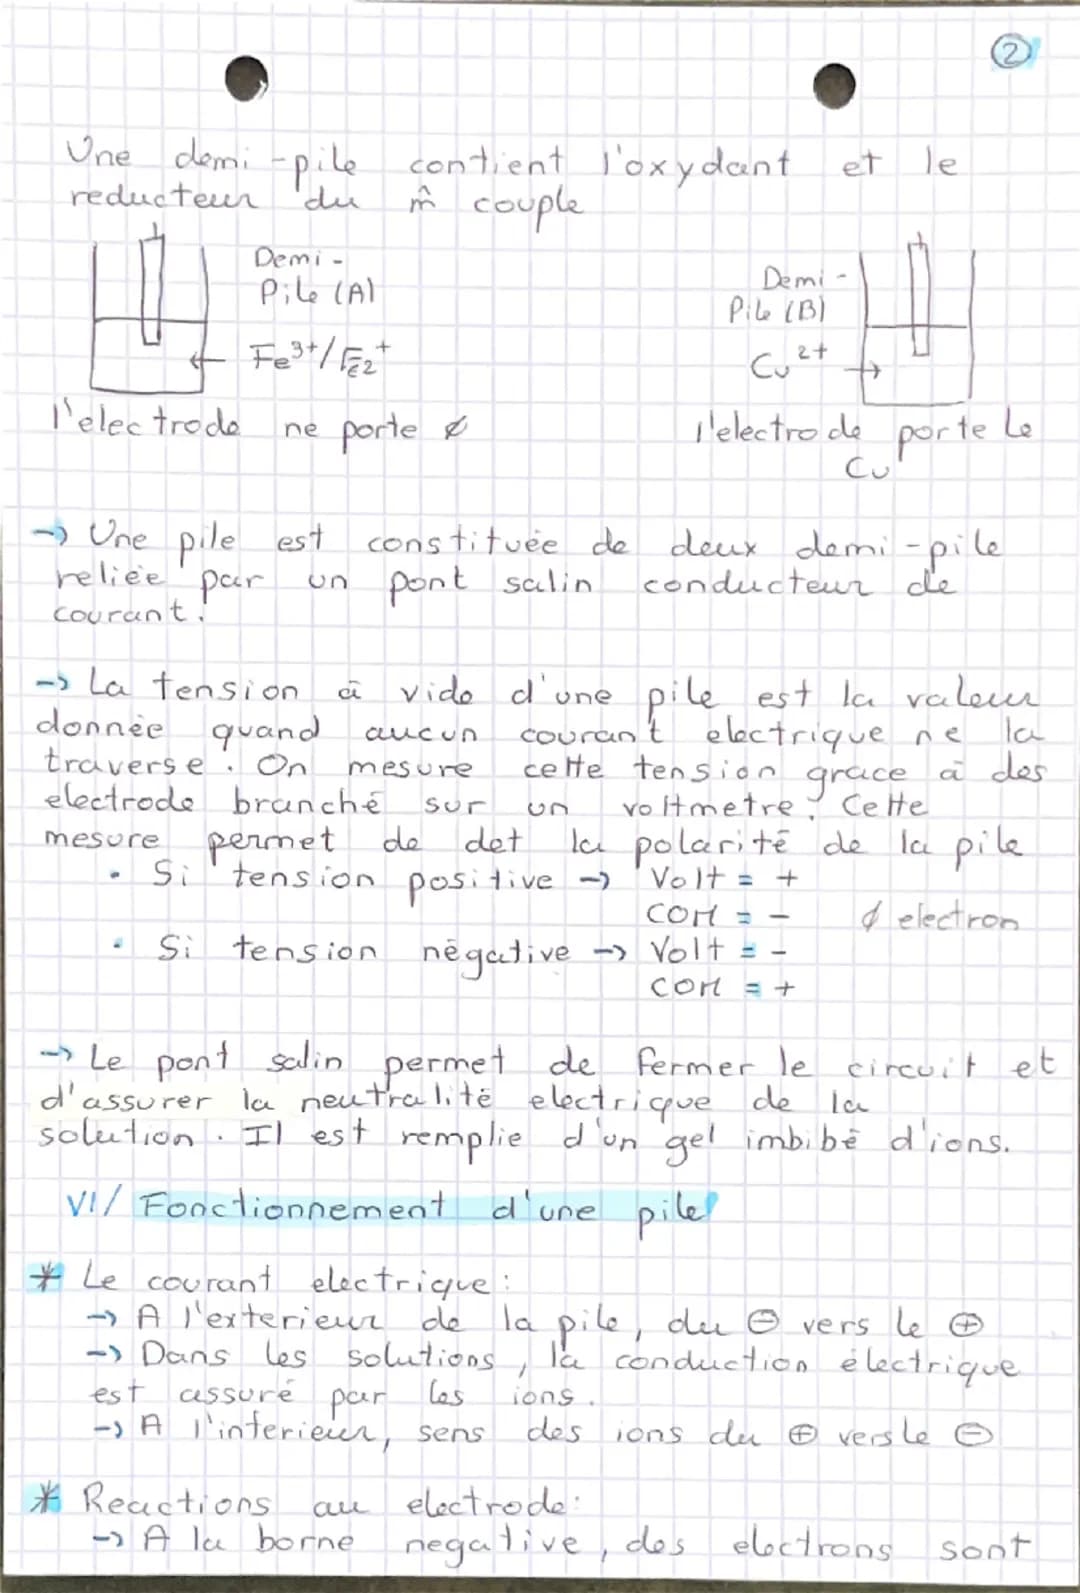 2
Une demi-pile contient l'oxydant et le
reducteur du m̂ couple
Demi-
Pile (A)
Fe³⁺/Fe2⁺
l'electrode ne porte ∅
Demi-
Pile (B)
Cu²⁺
l'electrode porte le
Cu
→ Une pile est constituée de deux demi-pile
reliée par un pont salin conducteur de
courant.
→ La tension à vide d'une pile est la valeur
donnée quand aucun courant electrique ne la
traverse. On mesure cette tension grace à des
electrode branché sur un voltmetre. Cette
mesure permet de det la polarité de la pile
• Si tension positive → Volt = +
COM = -
∅ electron
• Si tension négative → Volt = -
COM = +
→ Le pont salin permet de fermer le circuit et
d'assurer la neutralité electrique de la
solution. Il est remplie d'un gel imbibé d'ions.
VI/ Fonctionnement d'une pile
* Le courant electrique:
→ A l'exterieur de la pile, du ⊖ vers le ⊕
→ Dans les solutions, la conduction électrique
est assuré par les ions.
→ A l'interieur, sens des ions du ⊕ vers le ⊖
* Reactions au electrode:
→ A la borne negative, des electrons sont